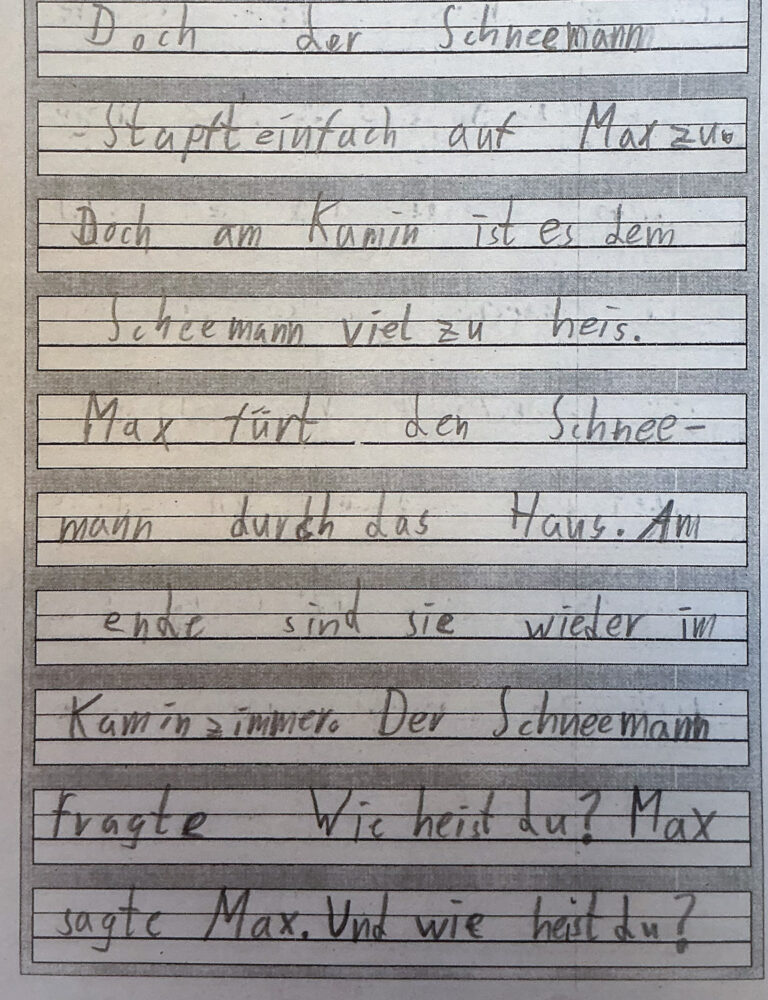 Doch der Schneemann
Stapft einfach auf Max zu.
Doch am Kamin ist es dem
Scheemann viel zu heis.
Max fürt den Schnee-
mann durch das Haus. Am
ende sind sie wieder im
Kaminzimmer. Der Schneemann
fragte Wie heist du? Max
sagte Max. Und wie heist du?